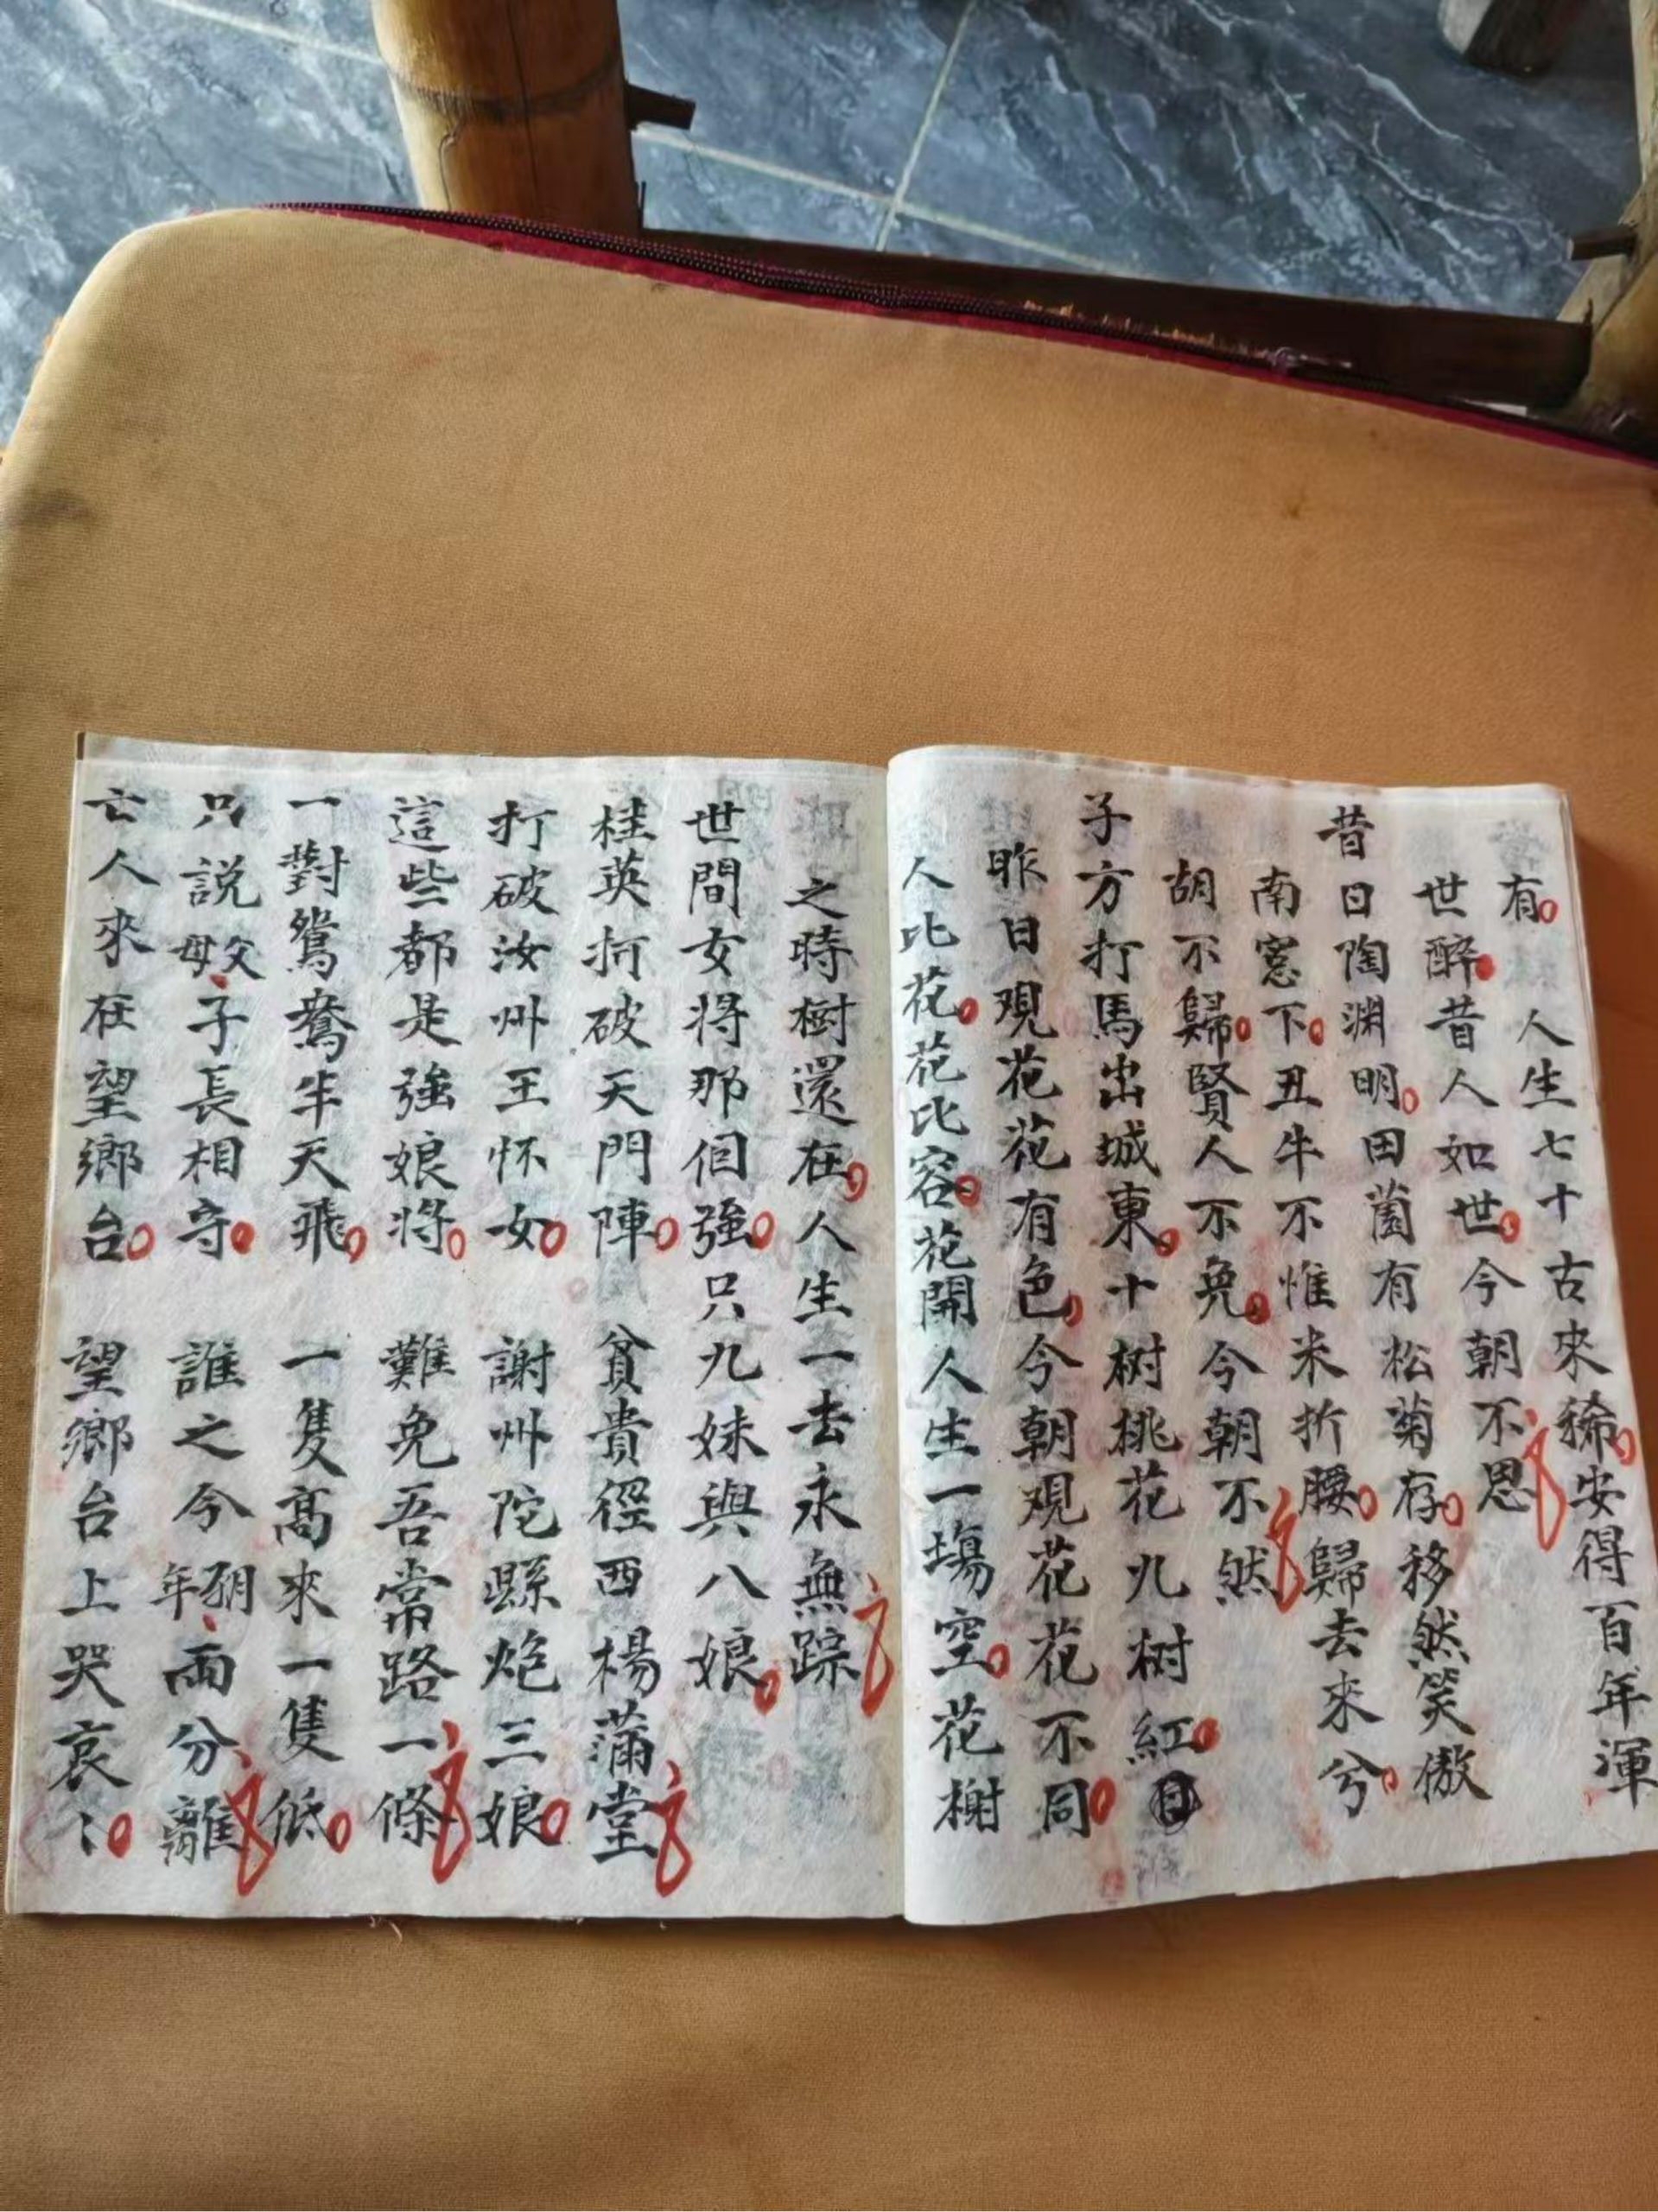 有人生七十古來稀安得百年渾
世醉昔人如世今朝不思
昔日陶淵明田薗有松菊存移然笑傲
南窓下丑牛不惟米折腰歸去來兮
胡不歸賢人不免今朝不然
子方打馬出城東十树桃花九树紅
昨日观花花有色今朝观花花不同
人比花花比容花開人生一塲空花榭
之時樹還在人生一去永無踪
世間女将那個強只九妹與八娘
桂英打破天門陣貧貴徑西楊蒲堂
打破汝州王怀女謝州陀縣炮三娘
這些都是強娘将難免吾常路一條
一對鴛鴦半天飛一隻髙來一隻低
只説父母子長相守誰之今朝年兩分離
亡人來在望鄉台望鄉台上哭哀: